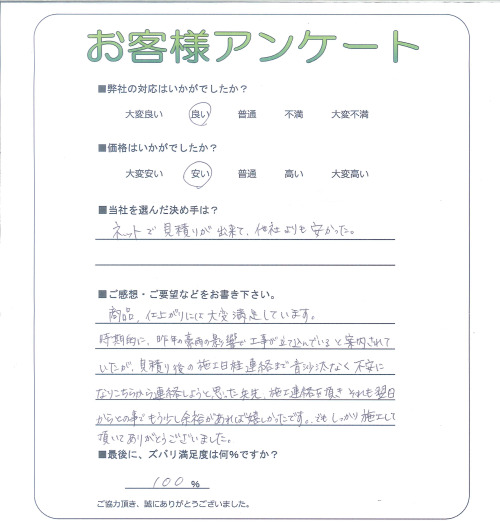 お客様アンケート
■弊社の対応はいかがでしたか？
大変良い 良い 普通 不満 大変不満
■価格はいかがでしたか？
大変安い 安い 普通 高い 大変高い
■当社を選んだ決め手は？
ネットで見積りが出来て、他社よりも安かった。
■ご感想・ご要望などをお書き下さい。
商品、仕上がりには大変満足しています。
時期的に、昨年の豪雨の影響で工事が立て込んでいると案内されて
いたが、見積り後の施工日程連絡まで音沙汰なく不安に
なりこちらから連絡しようと思った矢先、施工連絡を頂き それも翌日
からとの事でもう少し余裕があれば嬉しかったです。でもしっかり施工して
頂いてありがとうございました。
■最後に、ズバリ満足度は何％ですか？
100 %
ご協力頂き、誠にありがとうございました。